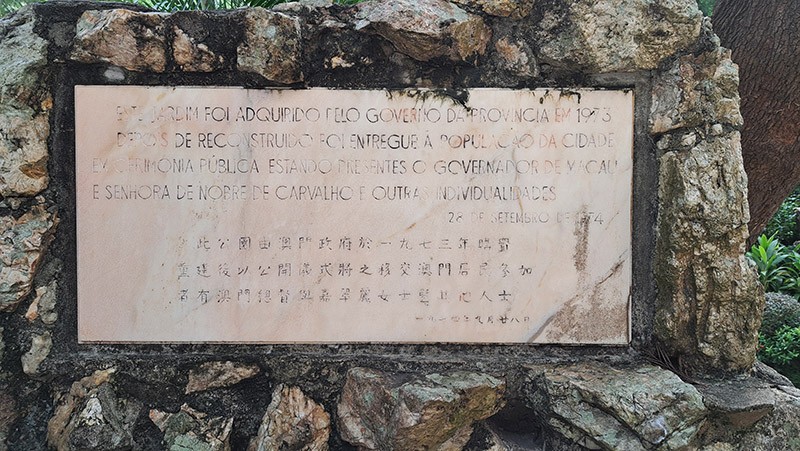 ESTE JARDIM FOI ADQUIRIDO PELO GOVERNO DA PROVINCIA EM 1973
DEPOIS DE RECONSTRUIDO FOI ENTREGUE À POPULAÇÃO DA CIDADE
EM CERIMONIA PÚBLICA ESTANDO PRESENTES O GOVERNADOR DE MACAU
E SENHORA DE NOBRE DE CARVALHO E OUTRAS INDIVIDUALIDADES
28 DE SETEMBRO DE 1974
此公園由澳門政府於一九七三年購置
重建後以公開儀式將之移交澳門居民參加
者有澳門總督與嘉翠麗女士暨其他人士
一九七四年九月廿八日